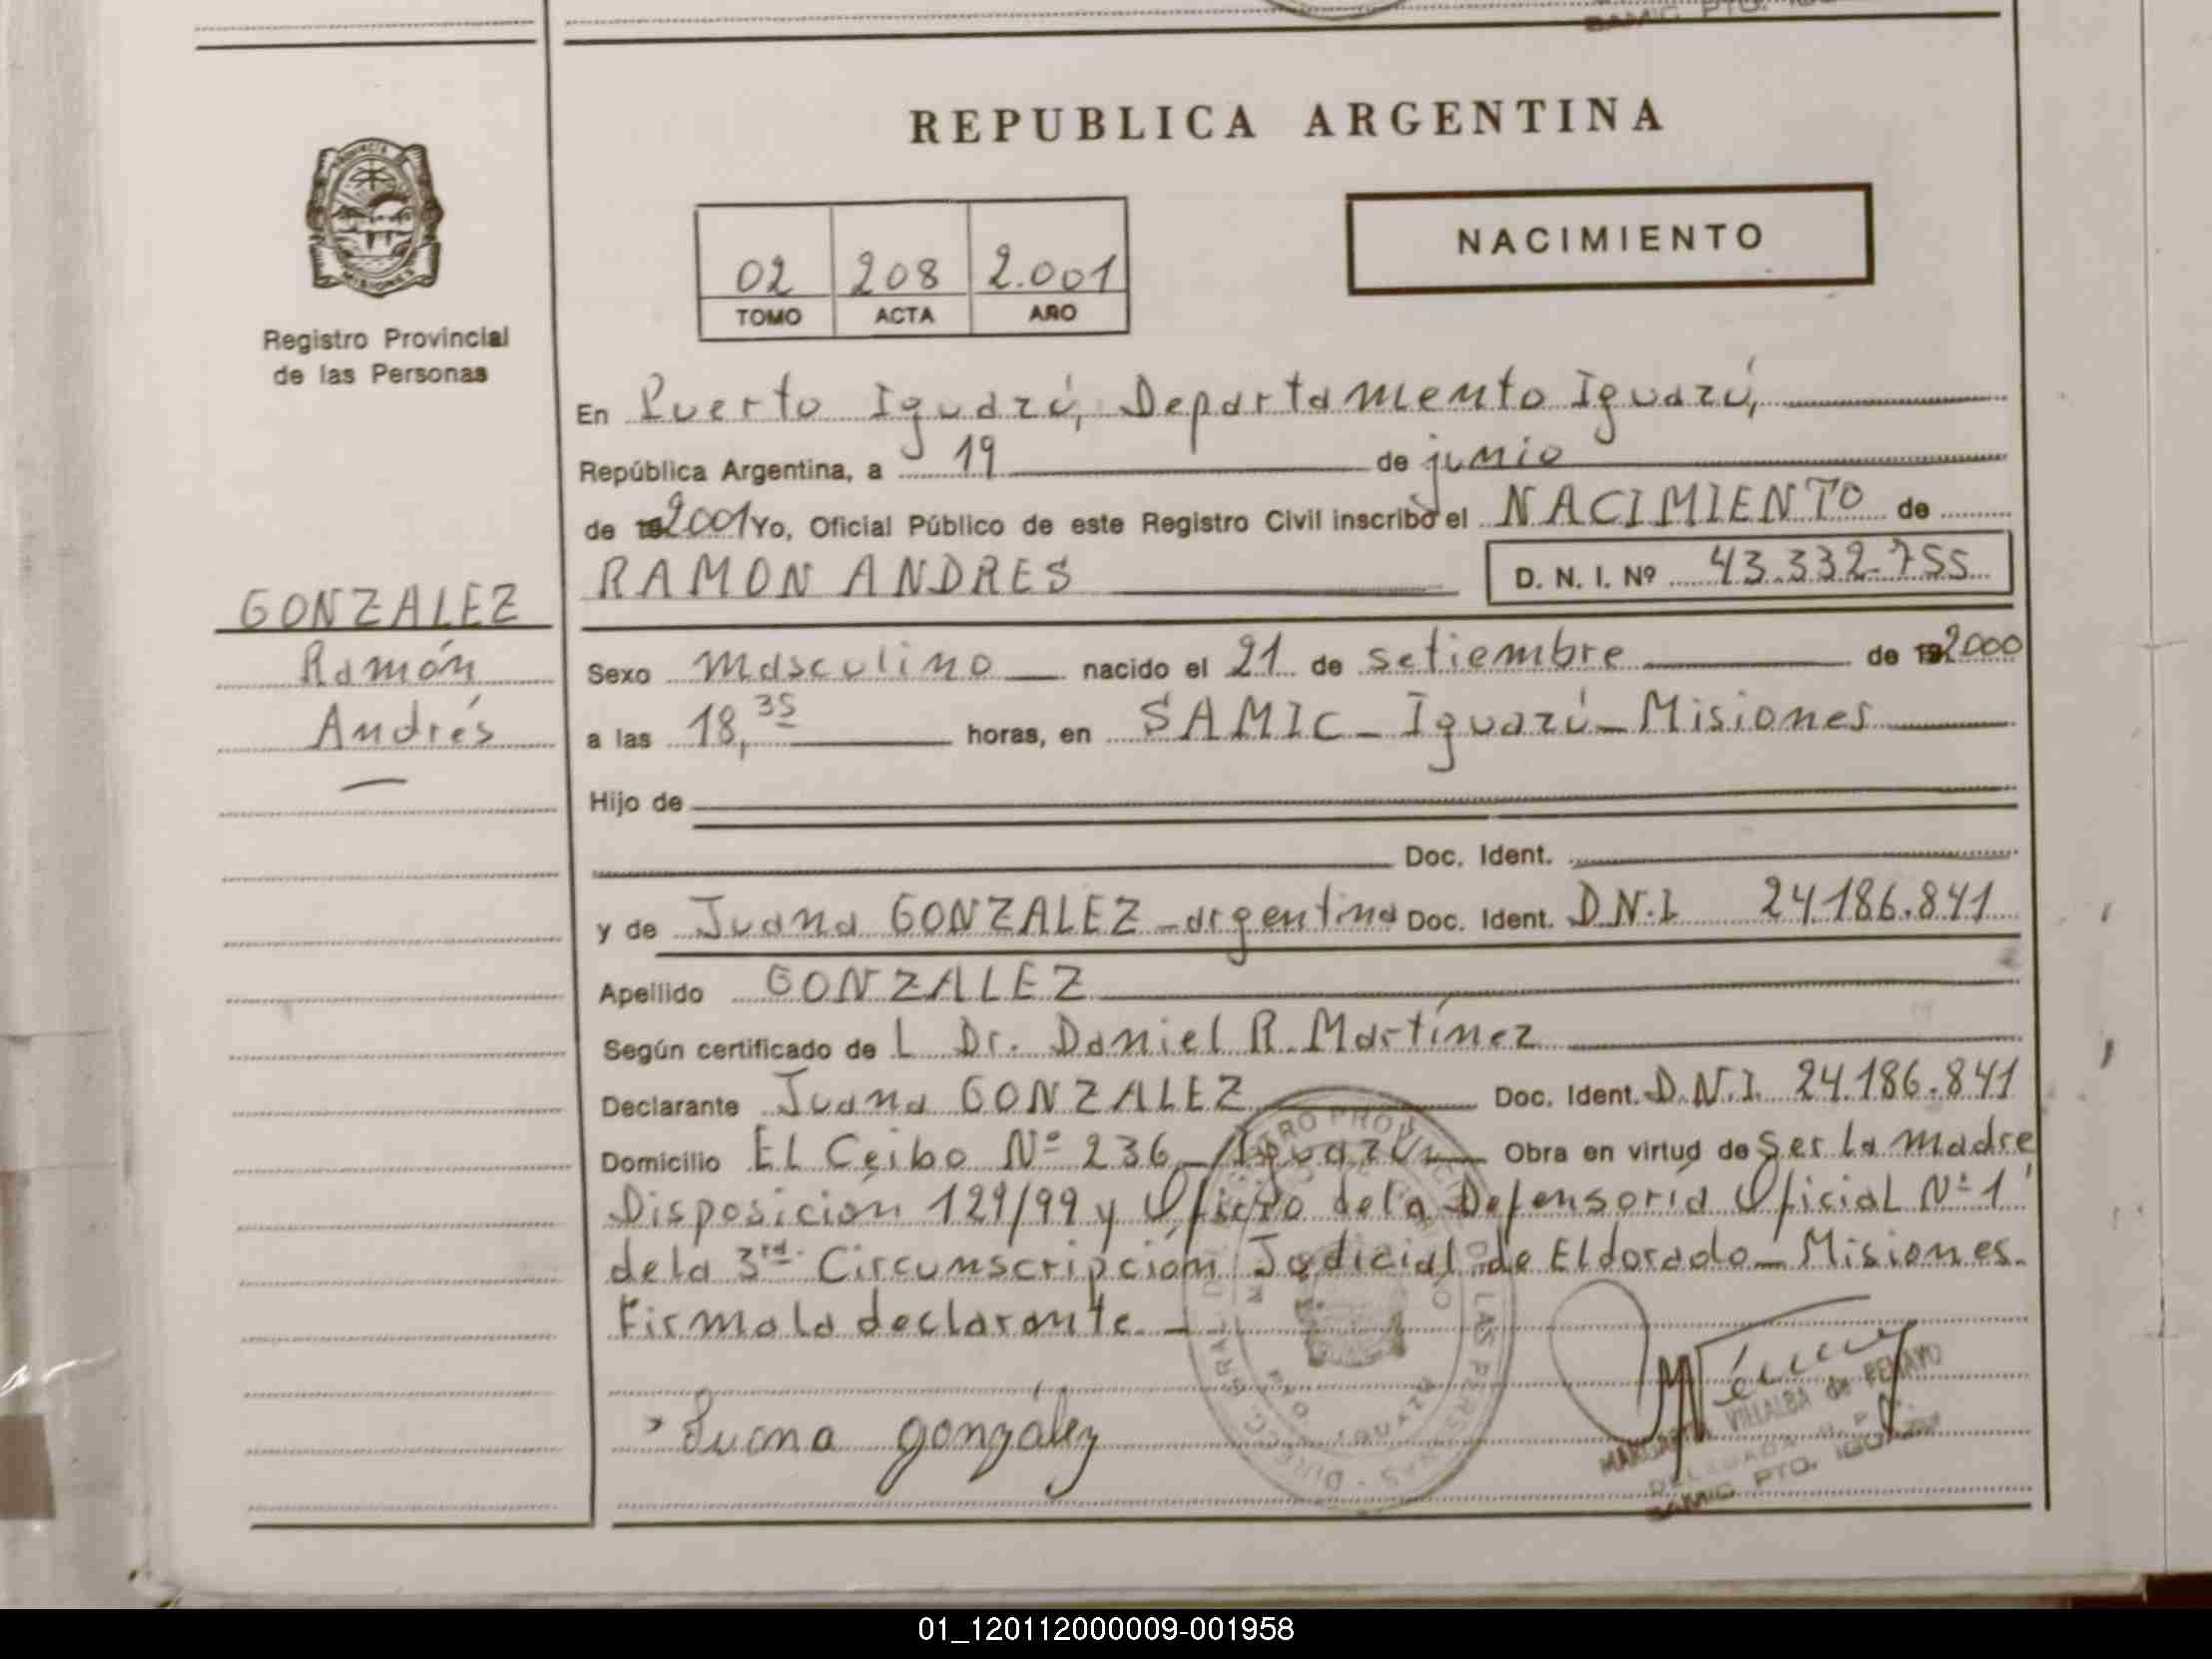 REPUBLICA ARGENTINA
NACIMIENTO
02 208 2.001
TOMO ACTA AÑO
Registro Provincial
de las Personas
En Puerto Iguazú, Departamento Iguazú,
República Argentina, a 19 de junio
de 2001 Yo, Oficial Público de este Registro Civil inscribo el NACIMIENTO de
RAMON ANDRES D. N. I. Nº 43.332.755
GONZALEZ
Ramón
Andrés
Sexo masculino nacido el 21 de setiembre de 2000
a las 18,35 horas, en SAMIC - Iguazú - Misiones
Hijo de
Doc. Ident.
y de Juana GONZALEZ - argentina Doc. Ident. D.N.I. 24.186.841
Apellido GONZALEZ
Según certificado de L Dr. Daniel R. Martínez
Declarante Juana GONZALEZ Doc. Ident. D.N.I. 24.186.841
Domicilio El Ceibo Nº 236 - Iguazú Obra en virtud de ser la madre
Disposición 129/99 y Oficio de la Defensoría Oficial Nº 1
de la 3ra. Circunscripción Judicial de Eldorado - Misiones.
Firma la declarante -
Juana gonzález
VILLALBA de
SAMIC PTO.
01_120112000009-001958